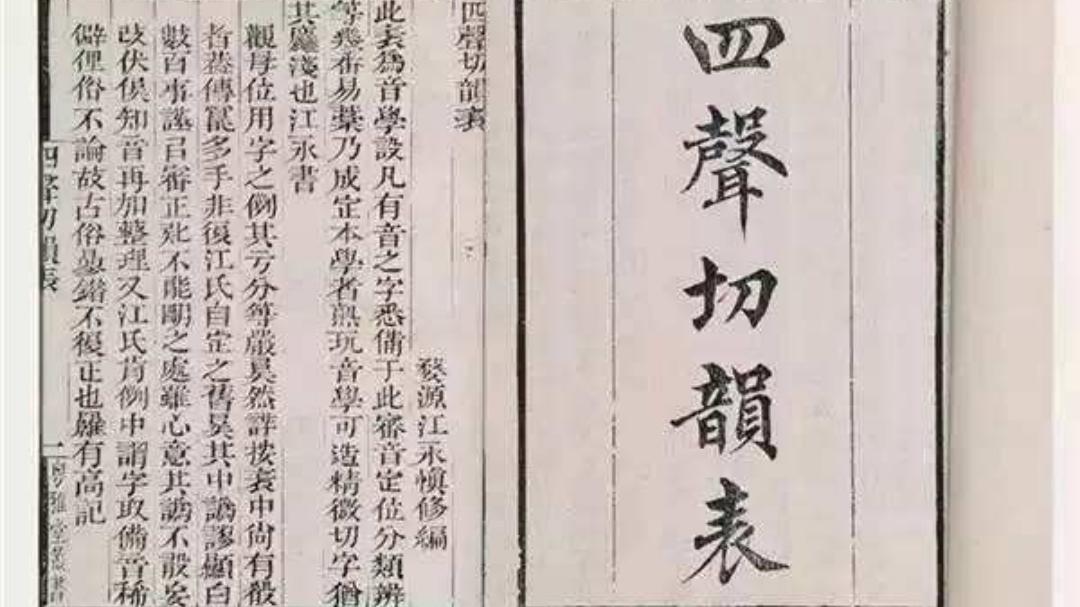 四聲切韻表
四聲切韻表
婺源江永慎修編
此表為音學設凡有音之字悉備于此審音定位分類辨
等幾番易藁乃成定本學者熟玩音學可造精微切字猶
其麤淺也江永書
觀母位用字之例其亏分等嚴矣然詳按表中尙有殽
者葢傳寫多手非復江氏自定之舊矣其中譌謬顯白
數百事謹㠯審正 不能朙之處雖心意其譌不 妄
改伏俟知音再加整理又江氏 例中謂字取備音稀
僻俚俗不論故古俗 錯不復正也羅有高記
四聲切韻表 粵雅堂叢書